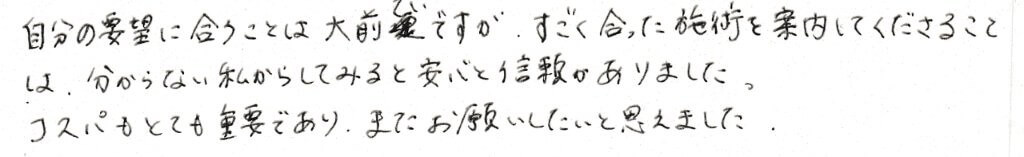 自分の要望に合うことは大前提ですが、すごく合った施術を案内してくださること
は、分からない私からしてみると安心と信頼がありました。
コスパもとても重要であり、またお願いしたいと思えました.